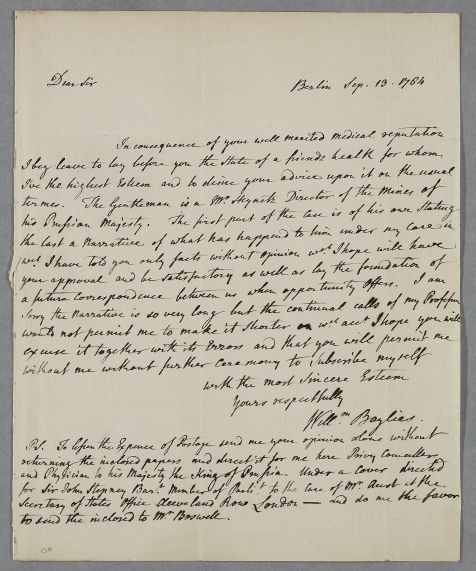 Dear Sir
Berlin Sep. 13. 1784
In consequence of your well merited medical reputation
I beg leave to lay before you the State of a friends health for whom
I've the highest Esteem and to desire your advice upon it on the usual
termes. The Gentleman is a Mr Director of the Mines of
his Prussian Majesty. The first part of the case is of his own Stating
the last a Narrative of what has happened to him under my care in
wch I have told you only facts without opinion wch I hope will have
your approval and be satisfactory as well as lay the foundation of
a future correspondence between us when opportunity offers. I am
Sorry the Narrative is so very long but the continual calls of my Profession
wants not permit me to make it Shorter on wch acct I hope you will
excuse it together with its Errors and that you will permit me
without me without further Ceremony to Subscribe myself
with the most Sincere Esteem
Yours respectfully
Willm Baylies.
P.S. To lessen the Expence of Postage send me your opinion alone without
returning the inclosed papers and direct it for me here Privy Councellor
and Physician to his Majesty the King of Prussia. Under a cover directed
for Sir John Stepney Bart. Member of Parlt. to the care of Mr. Aust at the
Secretary of States Office Cleveland Row London — and do me the favor
to send the inclosed to Mr Boswell.
130